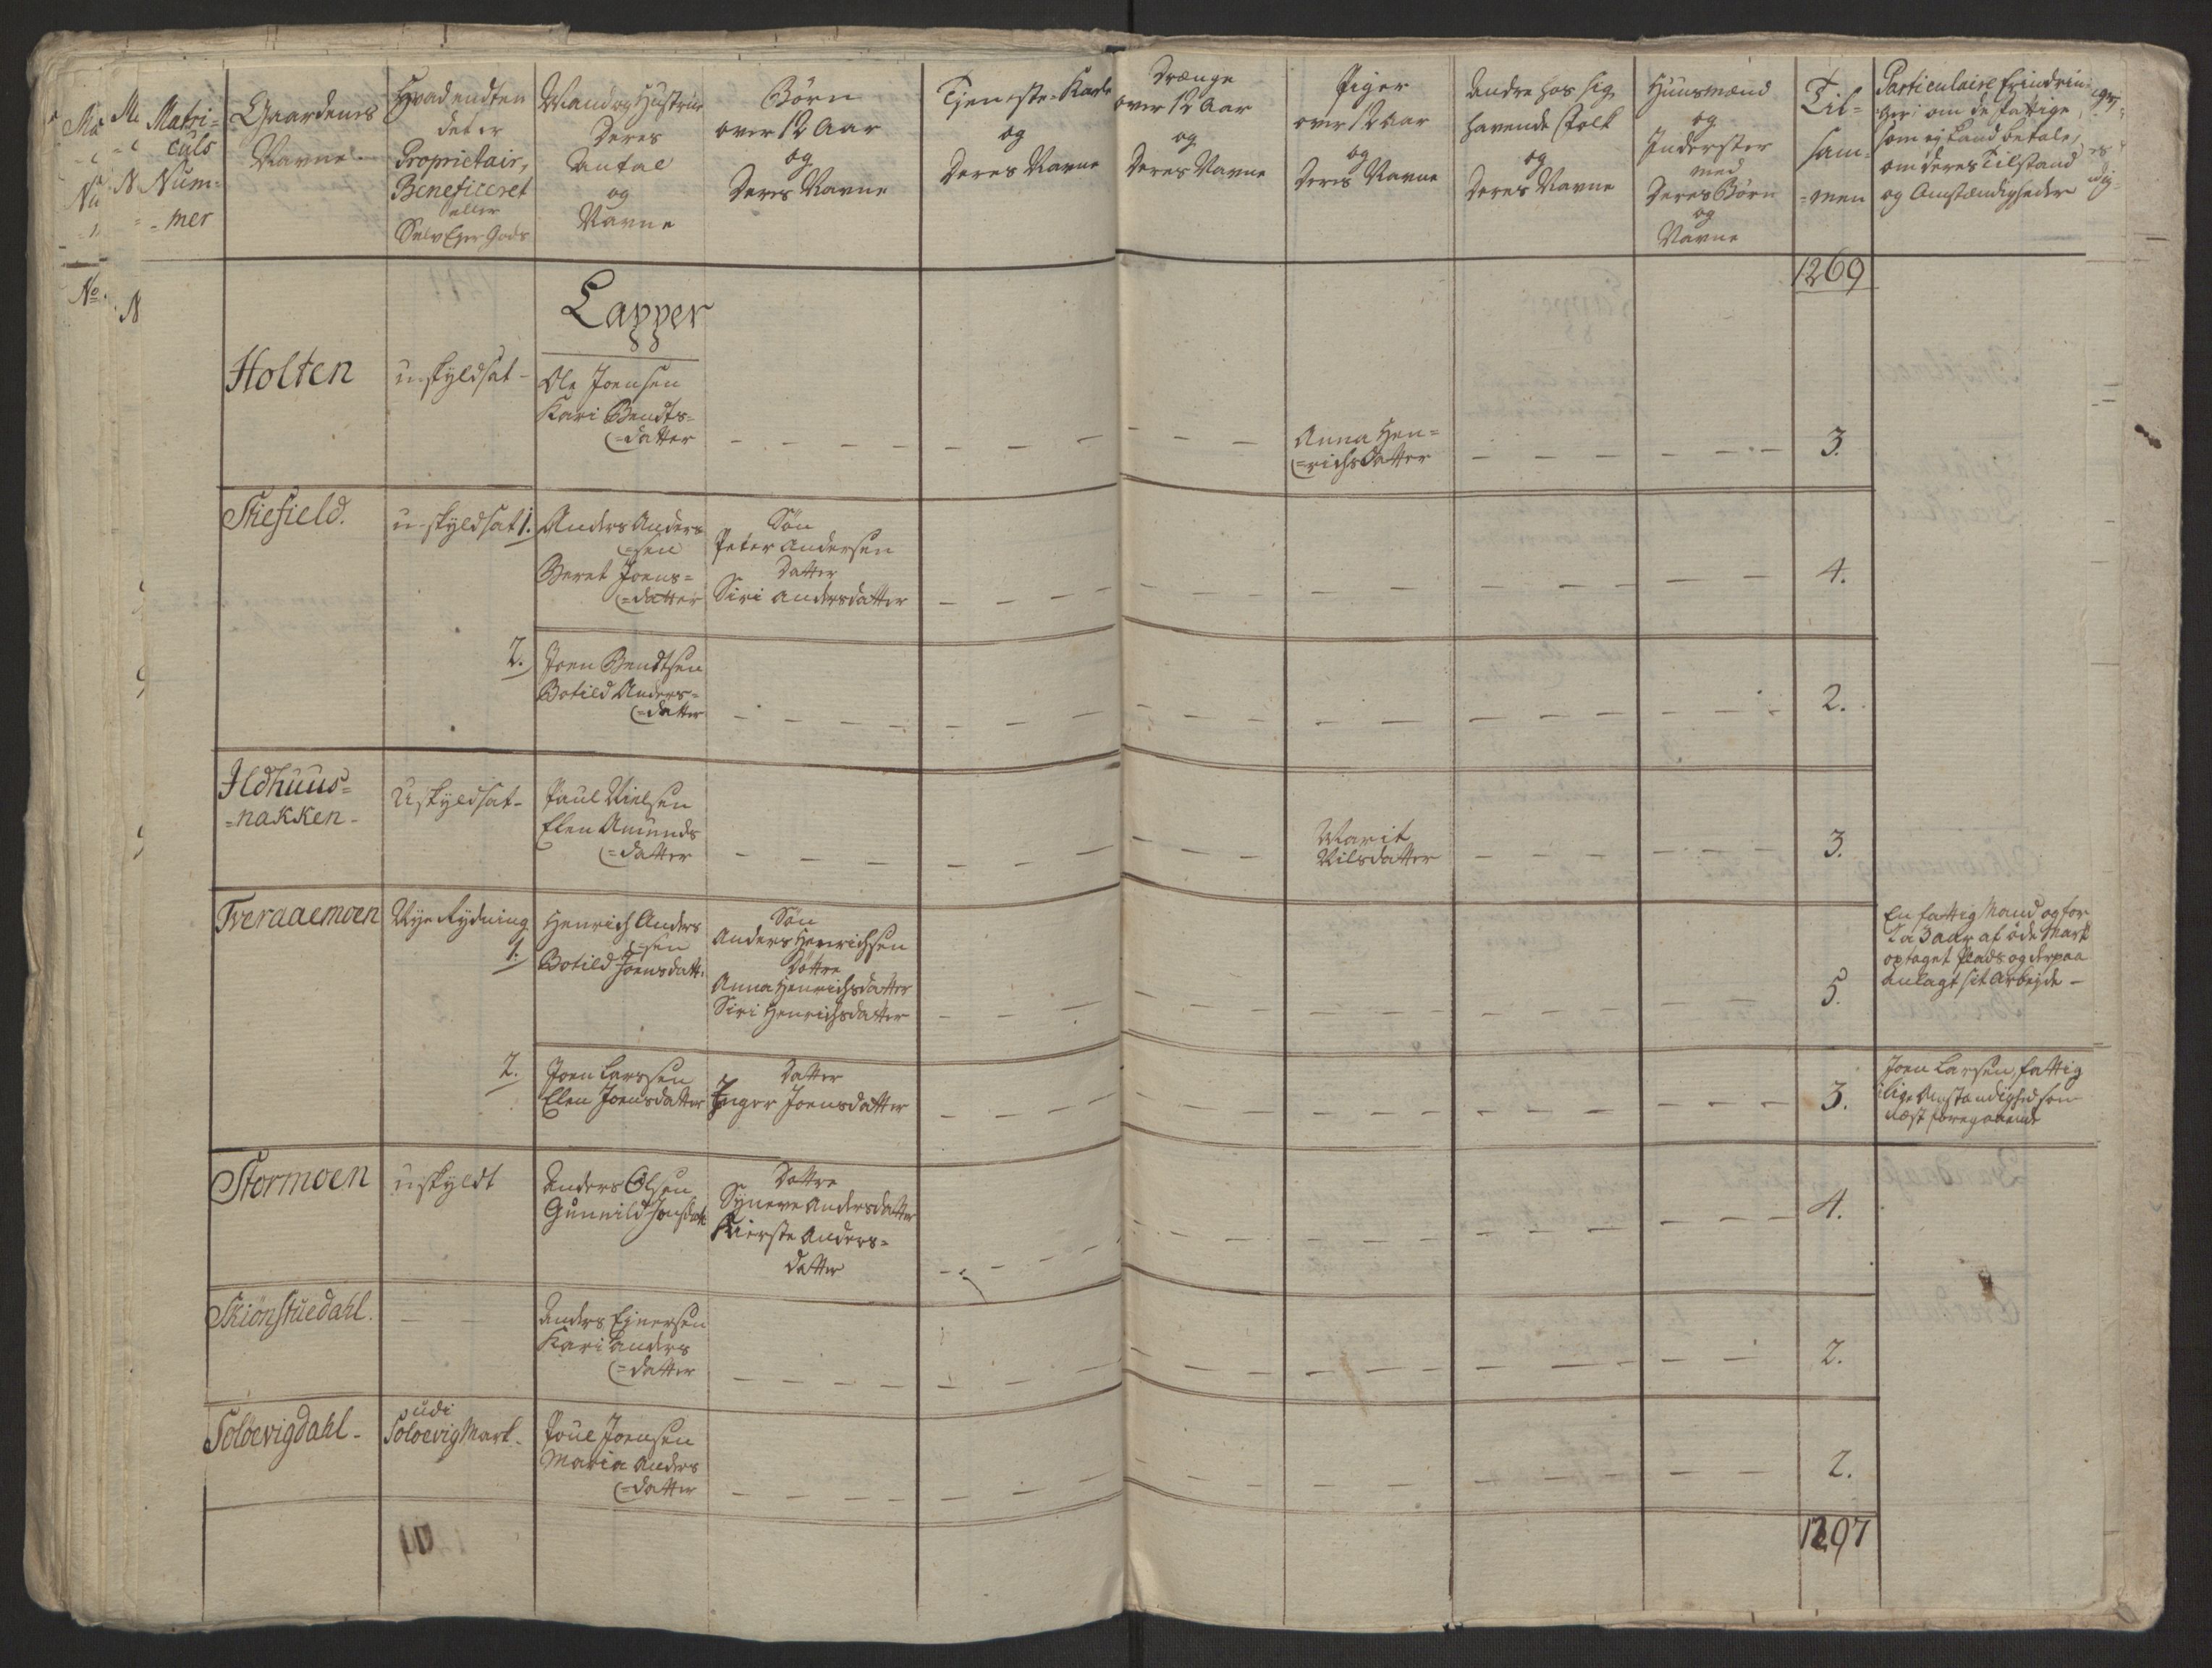 Matri=
culs
Num=
=mer
Gaardenes
Navne.
Hvad endten
det er
Proprietair,
Beneficeret
eller
Selv Ejer Gods
Mand og Hustrue
Deres
Antal
og
Navne
Børn
over 12 Aar
og
Deres Navne
Tjeneste-Karle
og
Deres Navne
Drænge
over 12 Aar
og
Deres Navne
Piger
over 12 Aar
og
Deres Navne
Andre hos sig
havende Folk
og
Deres Navne
Huusmænd
og
Inderster
med
Deres Børn
og
Navne
Til=
sam=
=men
Particulaire Erindrin
ger om de fattige,
som ej kand betale,
om deres Tilstand
og Omstændigheder
No.
1269
Lapper
Holten
u-skyldsat -
Ole Joensen
Kari Bendts=
(=datter
Anna Hen=
(=richsdatter
3.
Stiefield.
u-skyldsat 1.
Anders Anders
=sen
Beret Joens=
(=datter
Søn
Peter Andersen
Datter
Siri Andersdatter
4.
2.
Joen Bendtsen
Botild Anders=
(=datter
2.
Ildhuus=
=nakken -
Uskyldsat -
Paul Nielsen
Elen Amunds
(=datter
Marit
Nilsdatter
3.
Tveraaemoen
Nye Rydning
1.
Henrich Anders
=sen
Botild Joensdatt.
Søn
Anders Henrichsen
Døttre
Anna Henrichsdatter
Siri Henrichsdatter
5.
En fattig Mand og for
2 a 3 aar af øde Mark
optaget Plads og derpaa
anlagt sit Arbejde -
2.
Joen Larssen
Elen Joensdatter
Datter
Inger Joensdatter
3.
Joen Larsen, fattig
i lige Omstændighed som
næst foregaaende
Stormoen
uskyldt
Anders Olsen
Gunnild Jonsdatt
Døttre
Synneve Andersdatter
Kierste Anders=
datter
4.
Skiønstuedahl.
Anders Ejnersen
Kari Anders
(=datter
2.
Soløevigdahl -
udi
Soloevig Mark -
Poul Joensen
Maria Anders
(=datter
2.
1297